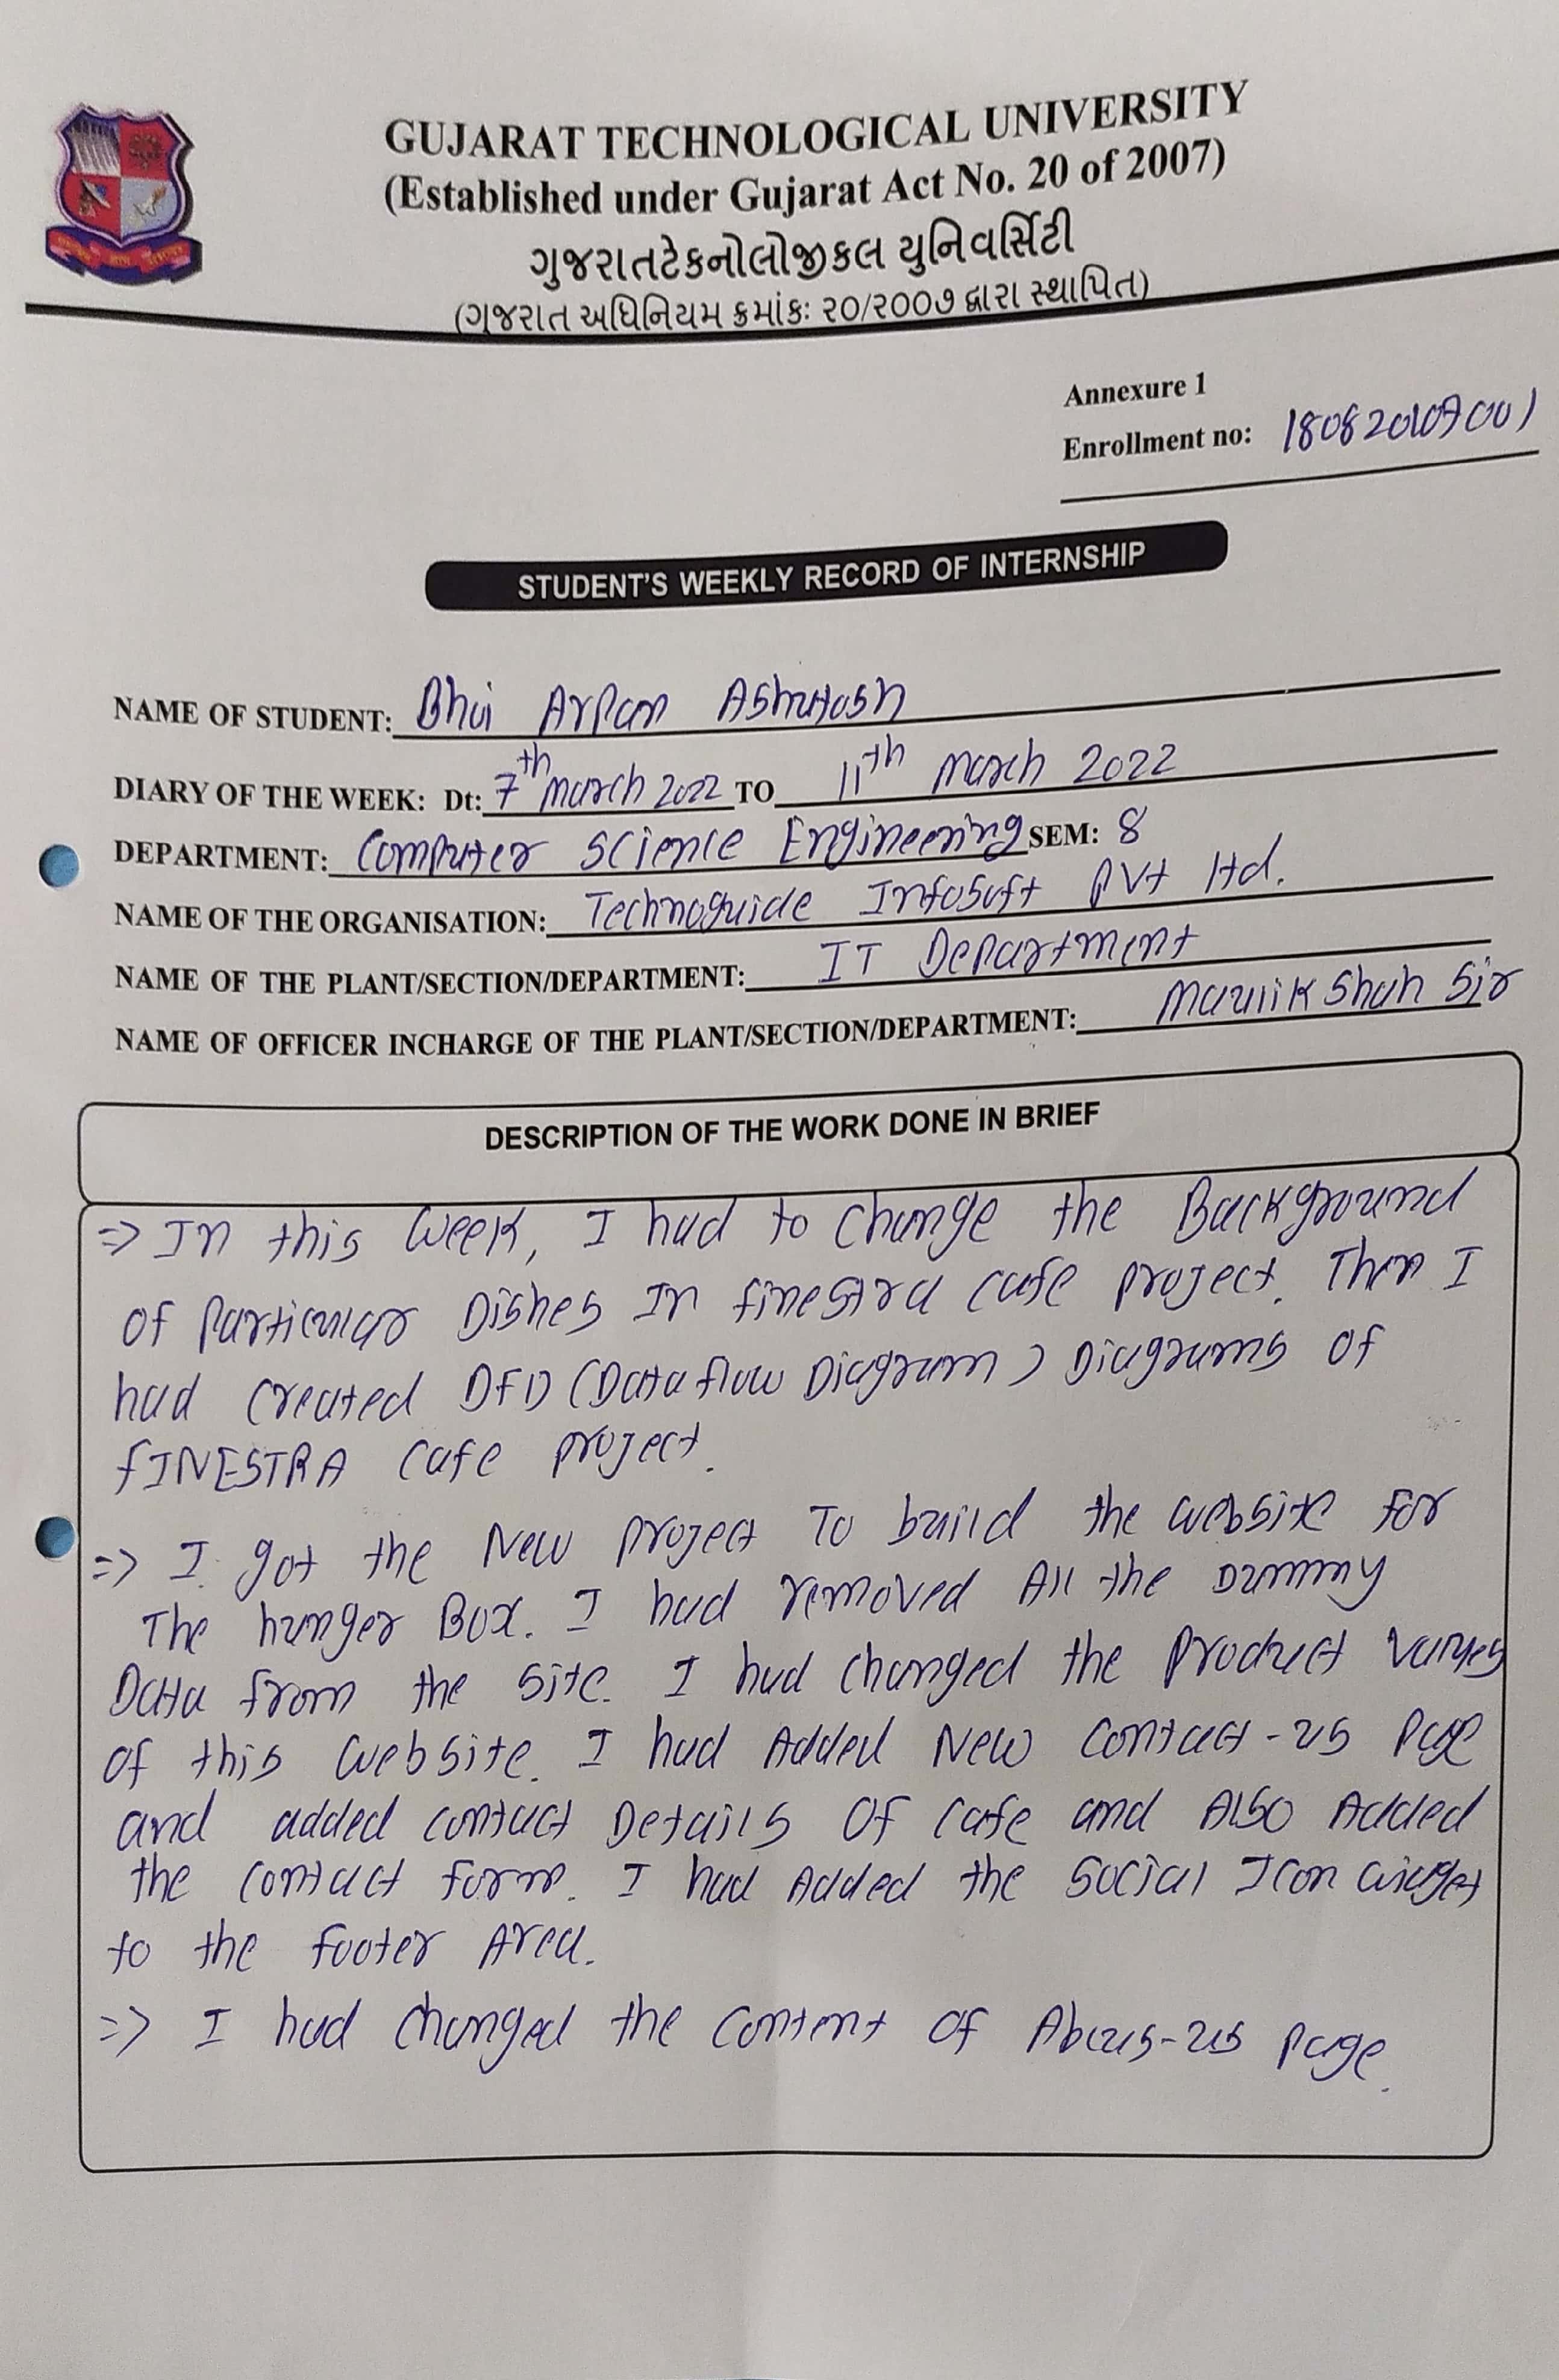 GUJARAT TECHNOLOGICAL UNIVERSITY
(Established under Gujarat Act No. 20 of 2007)
ગુજરાતટેકનોલોજીકલ યુનિવર્સિટી
(ગુજરાત અધિનિયમ ક્રમાંકઃ ૨૦/૨૦૦૭ દ્વારા સ્થાપિત)
Annexure 1
Enrollment no: 180820107001
STUDENT'S WEEKLY RECORD OF INTERNSHIP
NAME OF STUDENT: Bhoi Arpan Ashutosh
DIARY OF THE WEEK: Dt: 7th march 2022 TO 11th march 2022
DEPARTMENT: Computer Science Engineering SEM: 8
NAME OF THE ORGANISATION: Technoguide Infosoft Pvt ltd.
NAME OF THE PLANT/SECTION/DEPARTMENT: IT Department
NAME OF OFFICER INCHARGE OF THE PLANT/SECTION/DEPARTMENT: Maulik Shah Sir
DESCRIPTION OF THE WORK DONE IN BRIEF
=> In this week, I had to change the Background
of Particular Dishes In finestra cafe project. Then I
had created DFD (Data flow Diagram) Diagrams of
fINESTRA cafe project.
=> I got the New project To build the website for
The hunger Box. I had removed All the Dummy
Data from the site. I had changed the product values
of this website. I had Added New contact-us page
and added contact Details of cafe and Also Added
the contact form. I had Added the social Icon widget
to the footer Area.
=> I had changed the content of Abous-us page.